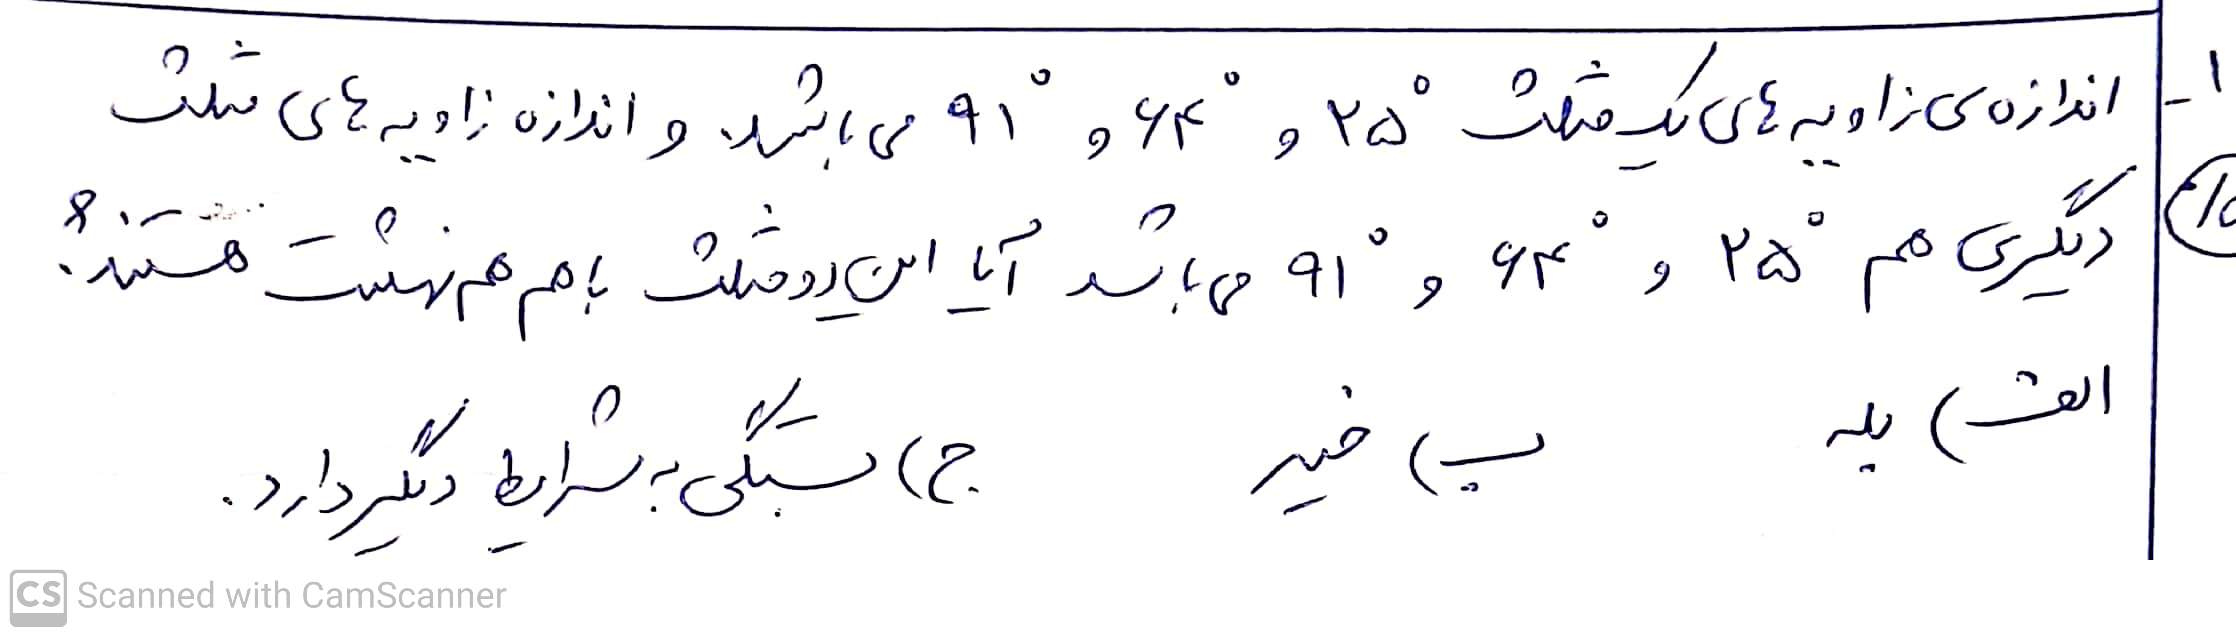 ۱- اندازه‌ی زاویه‌های یک مثلث ۲۵° و ۶۴° و ۹۱° می‌باشد. و اندازه زاویه‌های مثلث
دیگری هم ۲۵° و ۶۴° و ۹۱° می‌باشد آیا این دو مثلث با هم هم‌نهشت هستند؟
الف) بله ب) خیر ج) بستگی به شرایط دیگر دارد.
CS Scanned with CamScanner